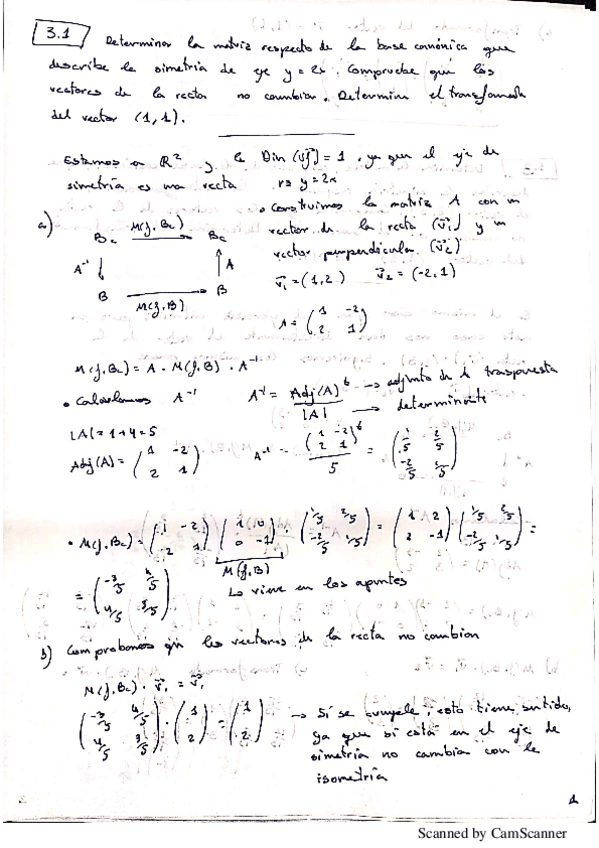 3.1 Determinar la matriz respecto de la base canónica que
describe la simetría de eje y = 2x. Compruebe que los
vectores de la recta no cambian. Determina el transformado
del vector (1,1).
Estamos en R² y la Dim (V_f^1) = 1, ya que el eje de
simetría es una recta r≡ y=2x
a) Bc M(f,Bc) Bc
A⁻¹ ↓ ↑ A
B M(f,B) B
• Construimos la matriz A con un
vector de la recta (v⃗₁) y un
vector perpendicular (v⃗₂)
v⃗₁ = (1,2) v⃗₂ = (-2,1)
A = (1 -2
2 1)
M(f,Bc) = A · M(f,B) · A⁻¹
• Calculamos A⁻¹ A⁻¹ = Adj(A)ᵗ / |A| → adjunto de la traspuesta
→ determinante
|A| = 1+4 = 5
Adj(A) = (1 -2
2 1) A⁻¹ = (1 -2
2 1)ᵗ / 5 = (1/5 2/5
-2/5 1/5)
• M(f,Bc) = (1 -2
2 1) (1 0
0 -1) · (1/5 2/5
-2/5 1/5) = (1 2
2 -1) (1/5 2/5
-2/5 1/5) =
M(f,B)
Lo viene en los apuntes
= (-3/5 4/5
4/5 3/5)
b) Comprobamos que los vectores de la recta no cambian
M(f,Bc) · v⃗₁ = v⃗₁
(-3/5 4/5
4/5 3/5) · (1
2) = (1
2) → Sí se cumple, esto tiene sentido,
ya que si está en el eje de
simetría no cambia con la
isometría
1
Scanned by CamScanner